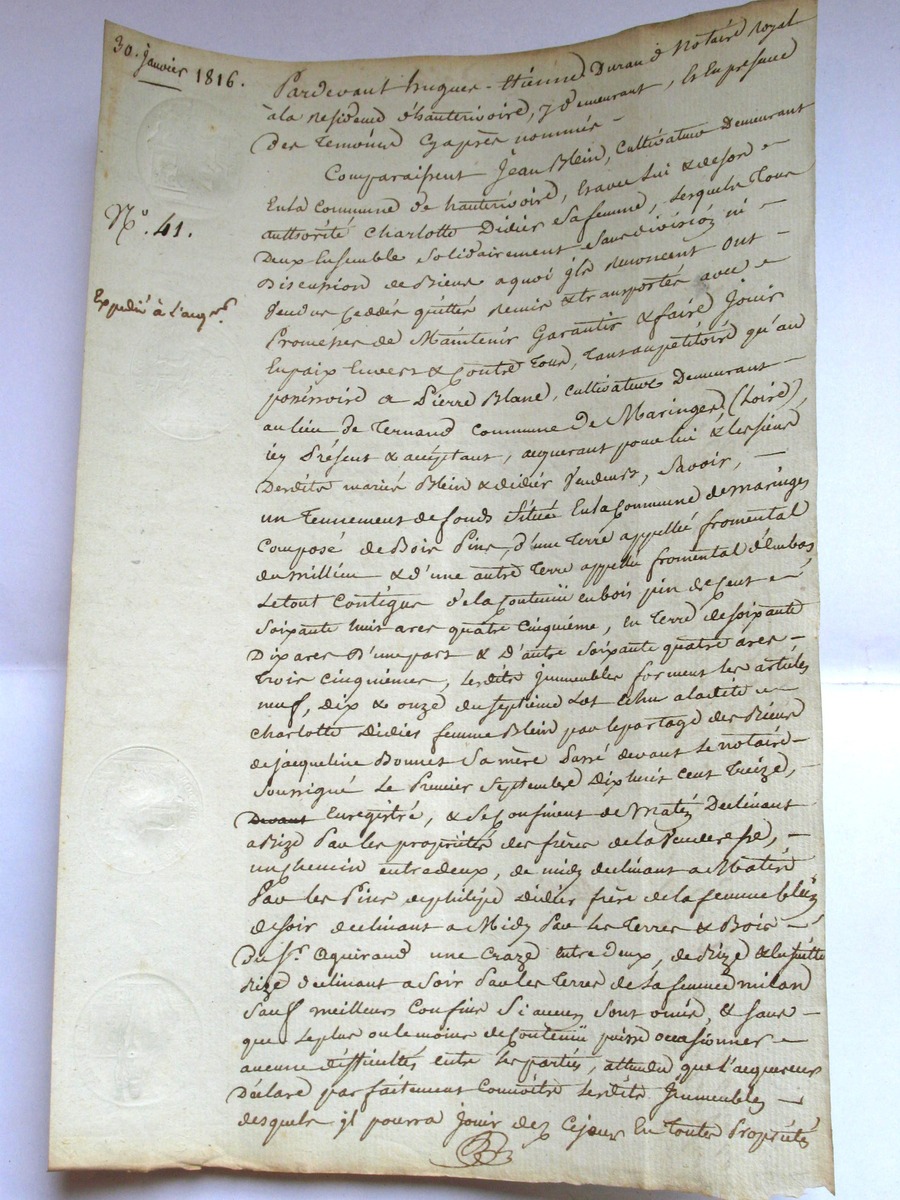 30. Janvier 1816.
N.° 41.
Expédié à l'acq.r
Pardevant hugues-Etienne Durand Notaire Royal
à la Residence d'hauterivoire, y demeurant, Et En présence
Des Temoins Cy après nommés —
Comparaissent Jean Blein, Cultivateur Demeurant
En la Commune de hauterivoire, & avec lui & de son
authorité Charlotte Didier Sa femme, Lesquels Tous
Deux Ensemble Solidairement Sans division ni
Discussion de Biens a quoi ils Renoncent Ont
Vendus Ceddés quittés Remis & transportés avec
Promesses de Maintenir Garantir & faire Jouir
En paix Envers & Contre Tous, Tant au pétitoire qu'au
possessoire a Pierre Blanc, Cultivateur Demeurant
au lieu de Ternand Commune De Maringes (Loire)
icy Présent & acceptant, acquerant pour lui & les siens
Desdits mariés Blein & didier Vendeurs, Savoir, —
un Tennement de fonds Situé En la Commune de maringes
Composé de Bois Pins, d'une Terre appellée fromental
du millieu & d'une autre Terre appellée fromental d'Embas
Le tout Contigus de la Contenue en bois pin de Cent
Soixante huit ares quatre Cinquième, en Terre de Soixante
Dix ares D'une part & D'autre Soixante quatre ares
trois cinquièmes, lesdits Immeubles forment les articles
neuf, dix & onze du Septième Lot Echu a ladite
Charlotte Didier femme Blein par le partage des Biens
de jacqueline Bonnet Sa mère Passé devant le notaire
Soussigné le Premier Septembre Dix huit cent Treize, —
Devant Enregistré, & Se Confinent de Matin Declinant
a Bize Par les propriétés des frères de la Venderesse, —
un Chemin entre deux, de midy declinant a Matin
Par les Pins de philipe Didier frère de la femme blein
de Soir declinant a Midy Par les Terres & Bois —
Du S.r Oquiraud une Craze Entre Deux, de Bize & ensuitte
Bize declinant a Soir Par les Terres de la femme milan
Sauf meilleurs Confins Si aucuns Sont omis, & Sans —
que le plus ou le moins de Contenue puisse occasionner
aucune difficultés entre les parties, attendu que l'acquereur
Déclare parfaitement Connoître lesdits Immeubles —
desquels il pourra Jouir dez Ce jour En Toutes Propriétés